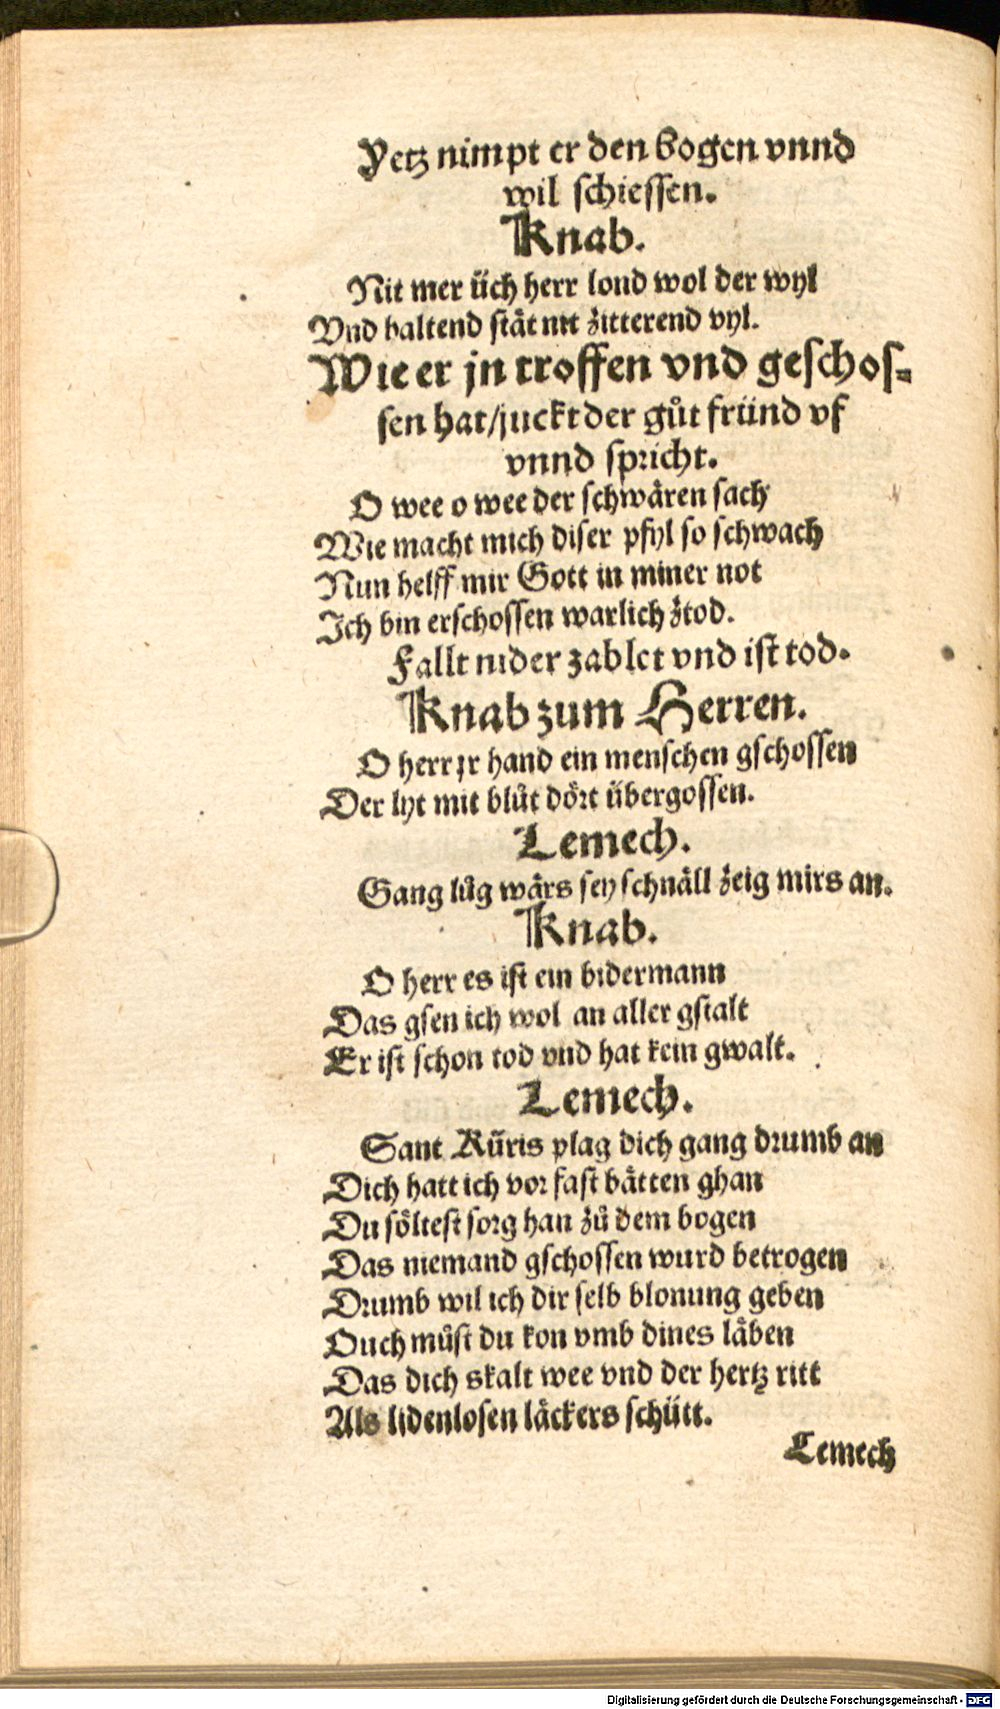 Yetz nimpt er den bogen vnnd
wil schiessen.
Knab.
Nit mer üch herr lond wol der wyl
Vnd haltend stät nit zitterend vyl.
Wie er jn troffen vnd geschos⸗
sen hat/juckt der gůt fründ vf
vnnd spricht.
O wee o wee der schwären sach
Wie macht mich diser pfyl so schwach
Nun helff mir Gott in miner not
Ich bin erschossen warlich ztod.
Fallt nider zablet vnd ist tod.
Knab zum Herren.
O herr jr hand ein menschen gschossen
Der lyt mit blůt dört übergossen.
Lemech.
Gang lůg wärs sey schnäll zeig mirs an.
Knab.
O herr es ist ein bidermann
Das gsen ich wol an aller gstalt
Er ist schon tod vnd hat kein gwalt.
Lemech.
Sant Küris plag dich gang drumb an
Dich hatt ich vor fast bätten ghan
Du söltest sorg han zů dem bogen
Das niemand gschossen wurd betrogen
Drumb wil ich dir selb blonung geben
Ouch můst du kon vmb dines läben
Das dich skalt wee vnd der hertz ritt
Als lidenlosen läckers schütt.
Lemech
Digitalisierung gefördert durch die Deutsche Forschungsgemeinschaft - DFG